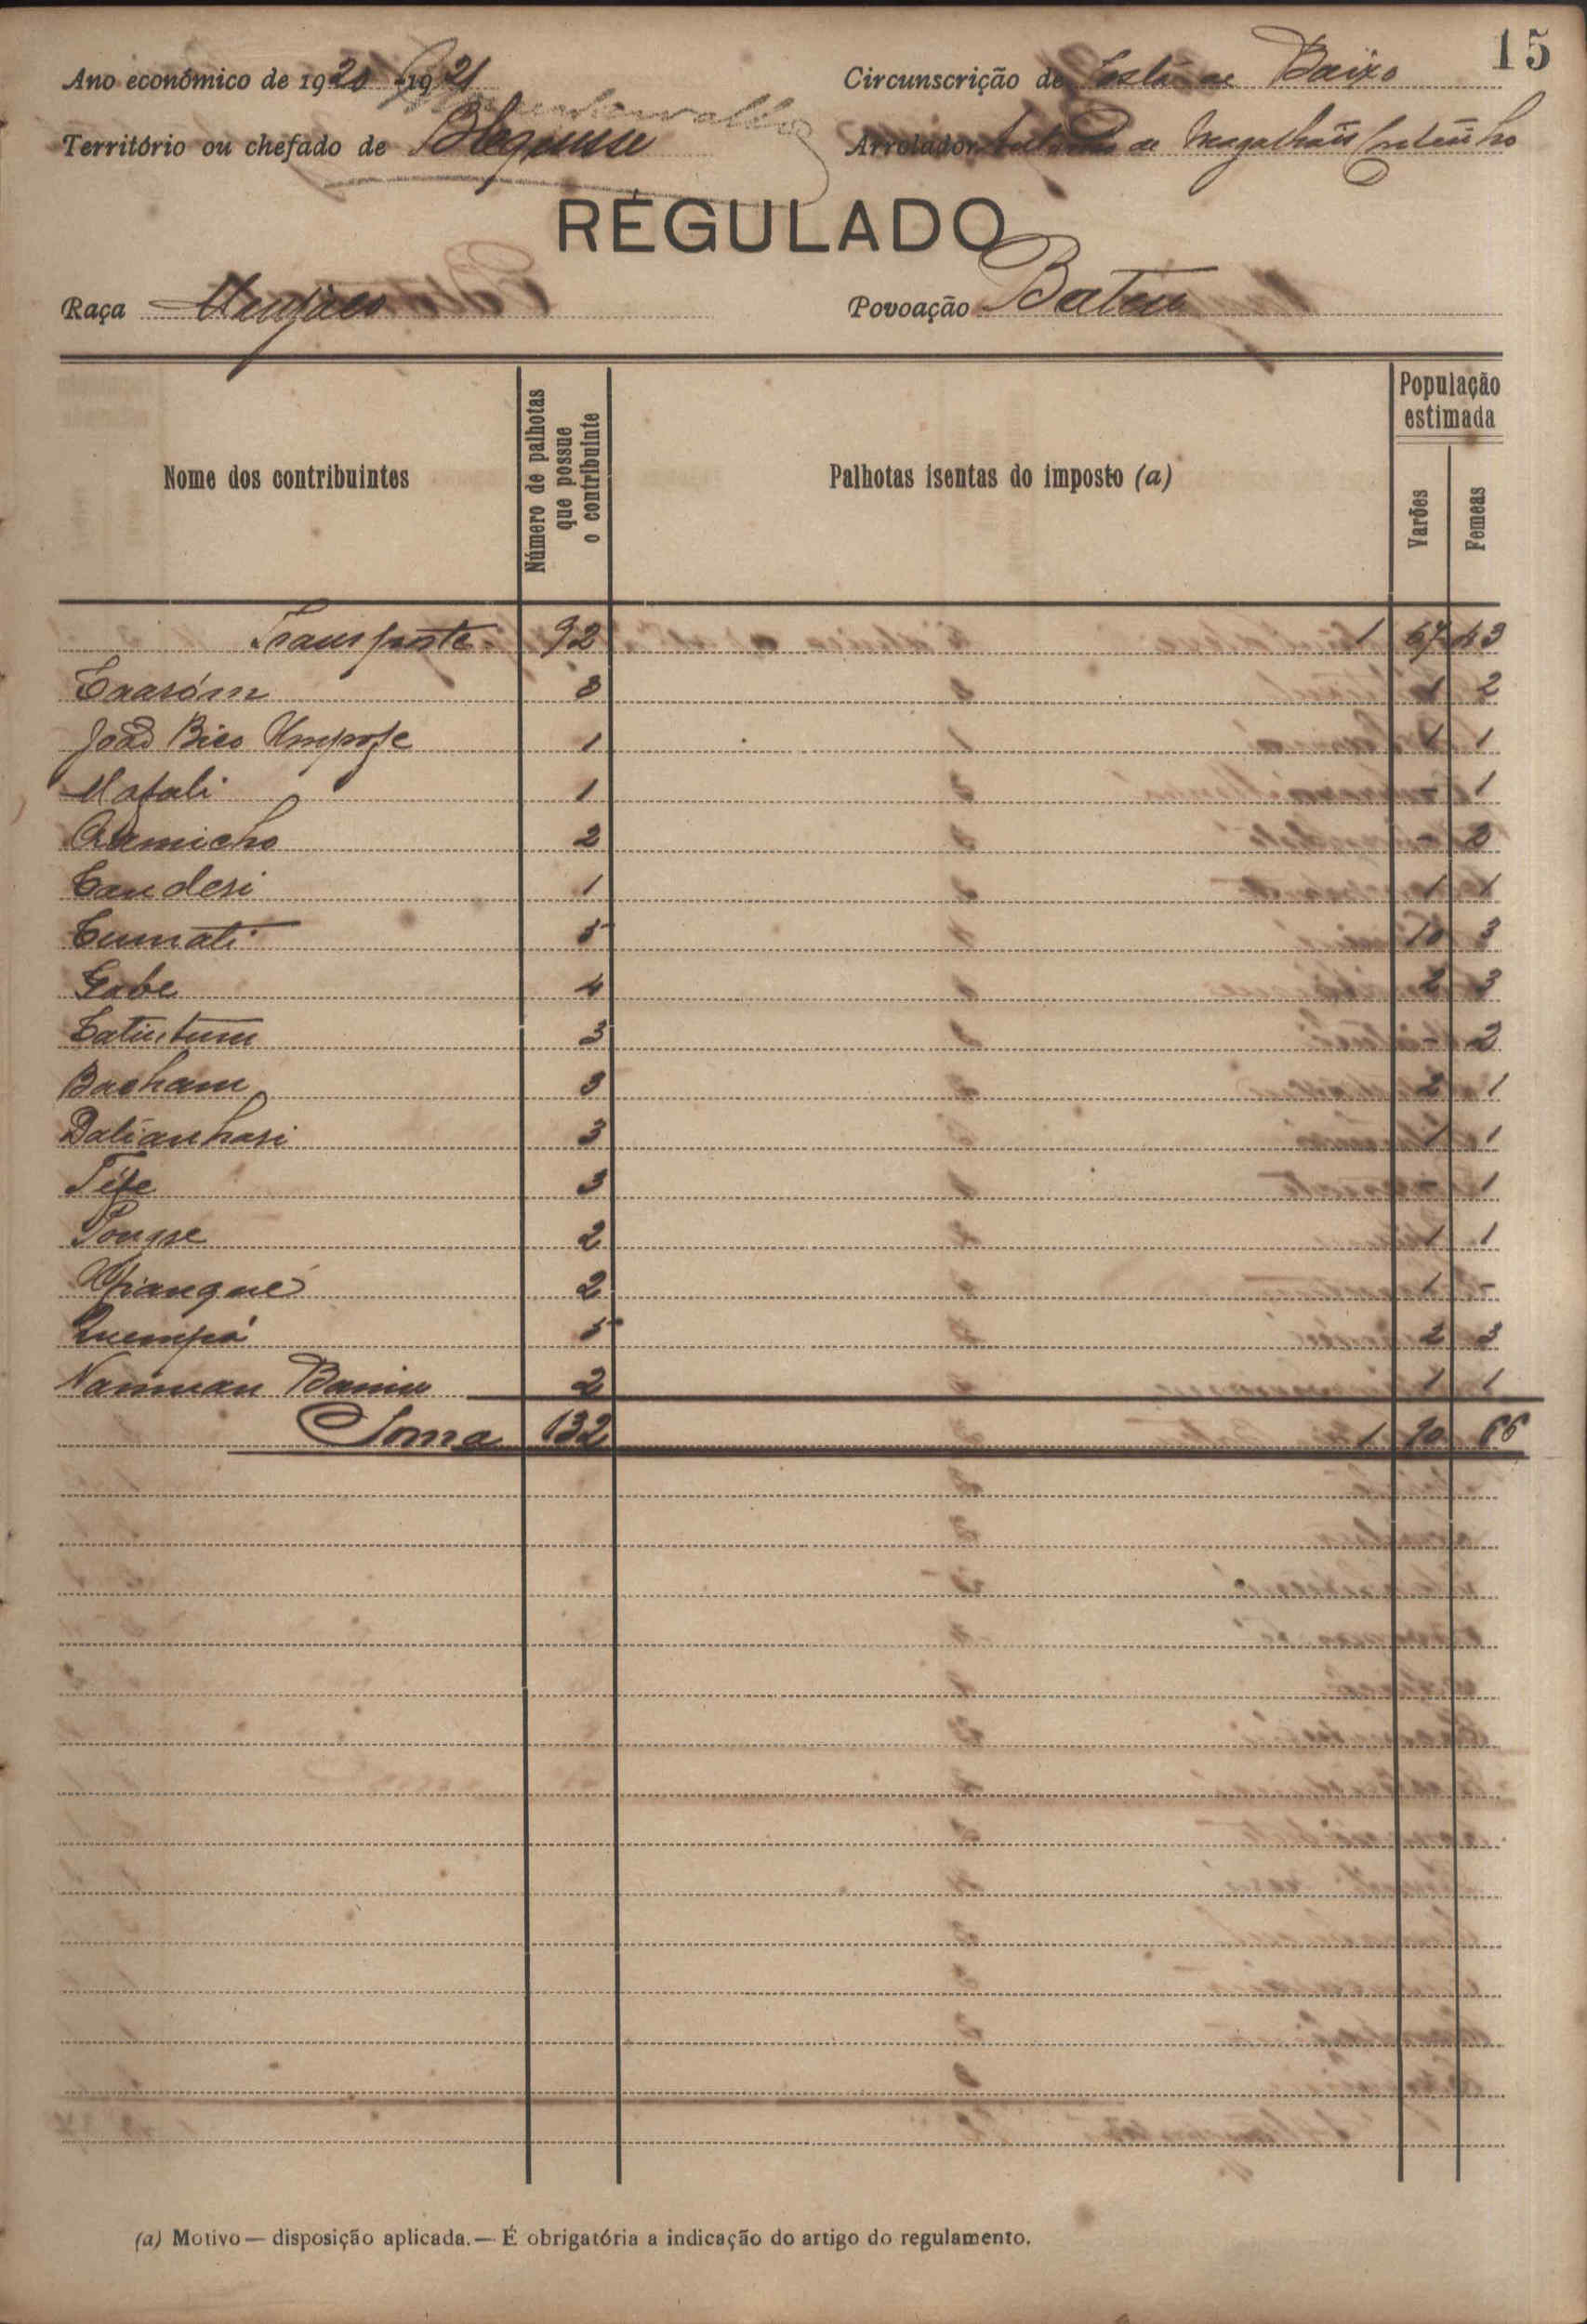 15
Ano económico de 1920-1921 Circunscrição de Costa de Baixo
Território ou chefado de Arrolador de Magalhães
REGULADO
Raça Manjaco Povoação Bateu
Nome dos contribuintes
Número de palhotas que possue o contribuinte
Palhotas isentas do imposto (a)
População estimada
Varões
Femeas
Transporte 92 1 67 43
Caasóm 8 1 2
João Bico 1 1 1
Mafali 1 - 1
2 - 2
Candesi 1 1 1
Cumati 5 10 3
Gabe 4 2 3
Catintum 3 - 2
Bacham 3 2 1
Dalianhasi 3 1 1
Tife 3 - 1
2 1 1
2 1 -
Quempá 5 2 3
Namuan 2 1 1
Soma 132 1 90 66
(a) Motivo — disposição aplicada. — É obrigatória a indicação do artigo do regulamento.